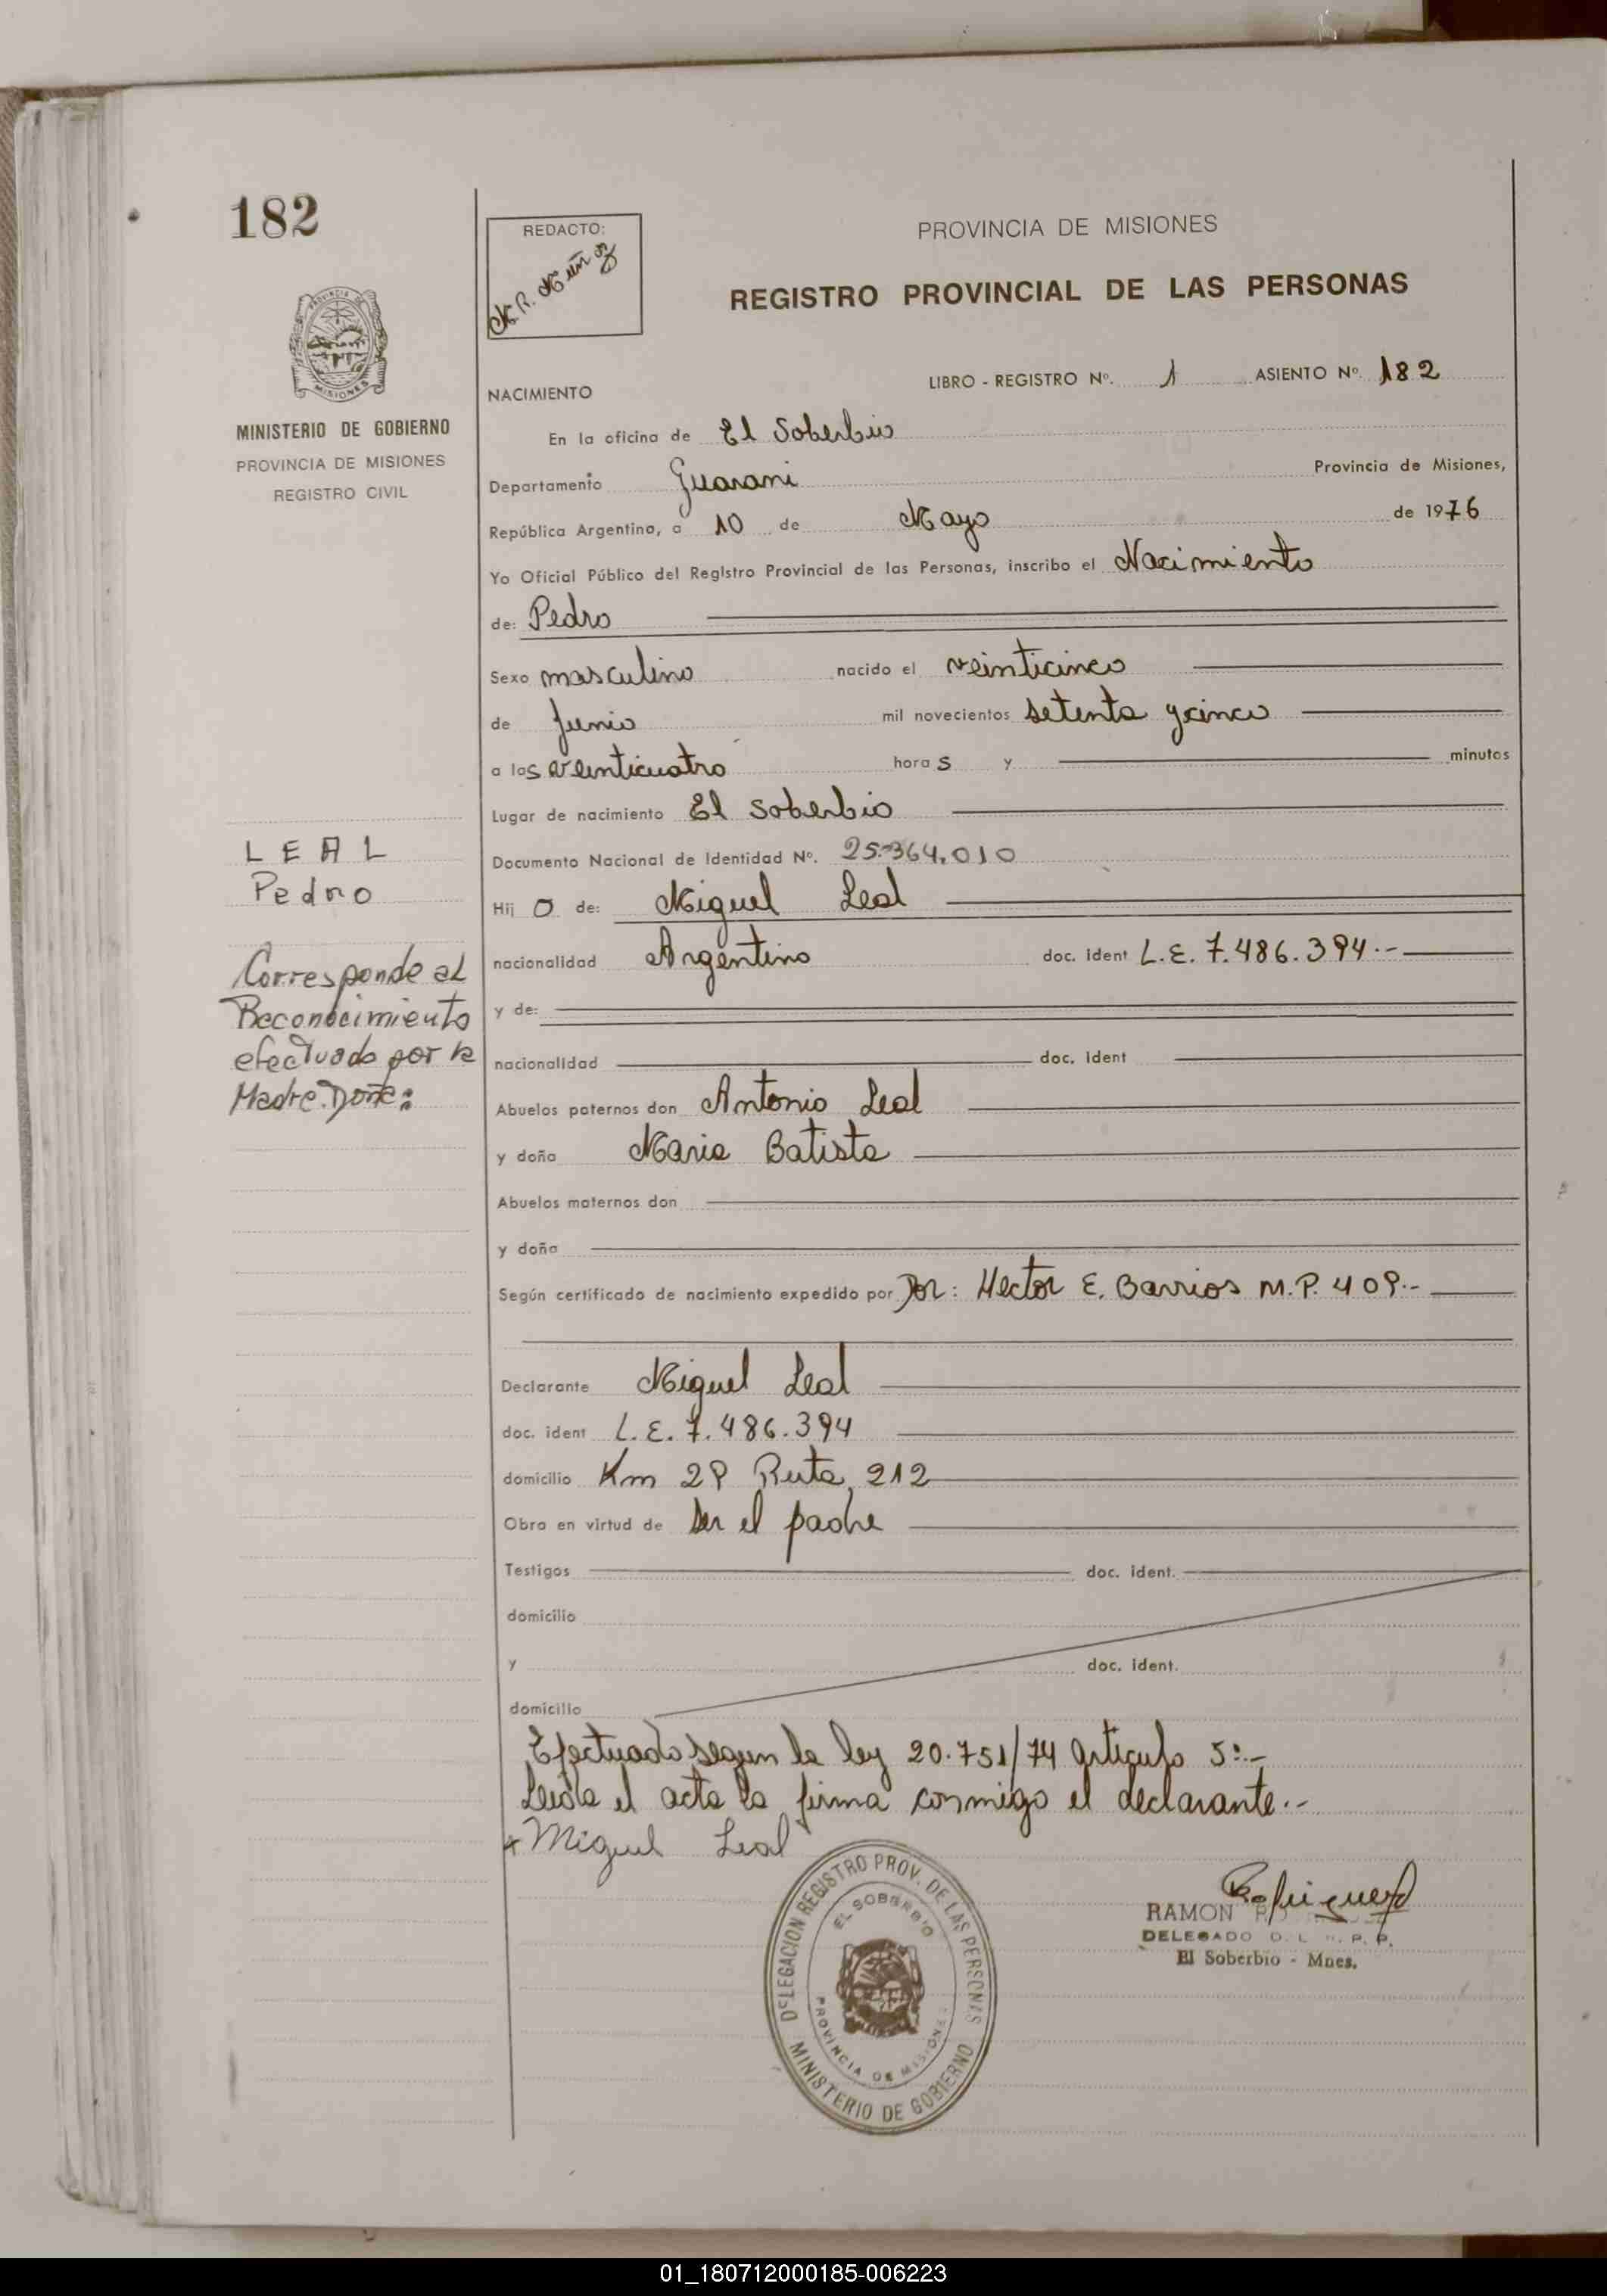 182
REDACTO:
M.R. Muñoz
PROVINCIA DE MISIONES
REGISTRO PROVINCIAL DE LAS PERSONAS
MINISTERIO DE GOBIERNO
PROVINCIA DE MISIONES
REGISTRO CIVIL
LIBRO - REGISTRO Nº. 1 ASIENTO Nº. 182
NACIMIENTO
En la oficina de El Soberbio
Departamento Guarani Provincia de Misiones,
República Argentina, a 10 de Mayo de 1976
Yo Oficial Público del Registro Provincial de las Personas, inscribo el Nacimiento
de: Pedro
Sexo masculino nacido el veinticinco
de Junio mil novecientos setenta y cinco
a las veinticuatro horas y minutos
Lugar de nacimiento El Soberbio
Documento Nacional de Identidad Nº. 25.364.010
Hijo de: Miguel Leal
nacionalidad Argentino doc. ident L.E. 7.486.394.-
y de:
nacionalidad doc. ident
Abuelos paternos don Antonio Leal
y doña Maria Batista
Abuelos maternos don
y doña
Según certificado de nacimiento expedido por Dor: Hector E. Barrios M.P. 409.-
Declarante Miguel Leal
doc. ident L.E. 7.486.394
domicilio Km 29 Ruta 212
Obra en virtud de ser el padre
Testigos doc. ident.
domicilio
y doc. ident.
domicilio
Efectuado segun la ley 20.751/74 articulo 5º.-
Leida el acta la firma conmigo el declarante.-
+ Miguel Leal
LEAL
Pedro
Corresponde al
Reconocimiento
efectuado por la
Madre Doña:
DELEGACION REGISTRO PROV. DE LAS PERSONAS
EL SOBERBIO
PROVINCIA DE MISIONES
MINISTERIO DE GOBIERNO
Rodriguez
RAMON
DELEGADO D. L. R. P. P.
El Soberbio - Mnes.
01_180712000185-006223